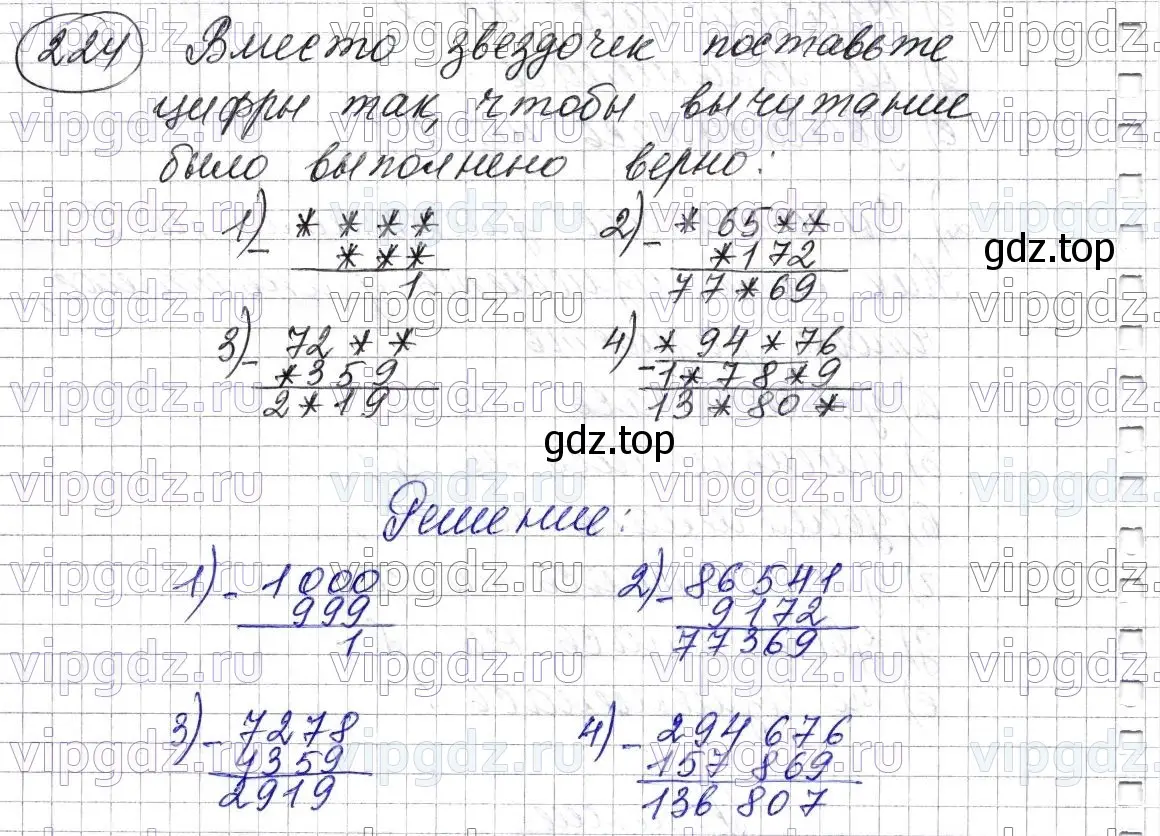 224 Вместо звездочек поставьте
цифры так, чтобы вычитание
было выполнено верно:
1) - * * * *
* * *
1
2) - * 65 * *
* 172
77 * 69
gdz.top
3) - 72 * *
* 359
2 * 19
4) - * 94 * 76
1 * 78 * 9
13 * 80 *
gdz.top
Решение:
1) - 1000
999
1
2) - 86541
9172
77369
3) - 7278
4359
2919
4) - 294 676
157 869
136 807
vipgdz.ru